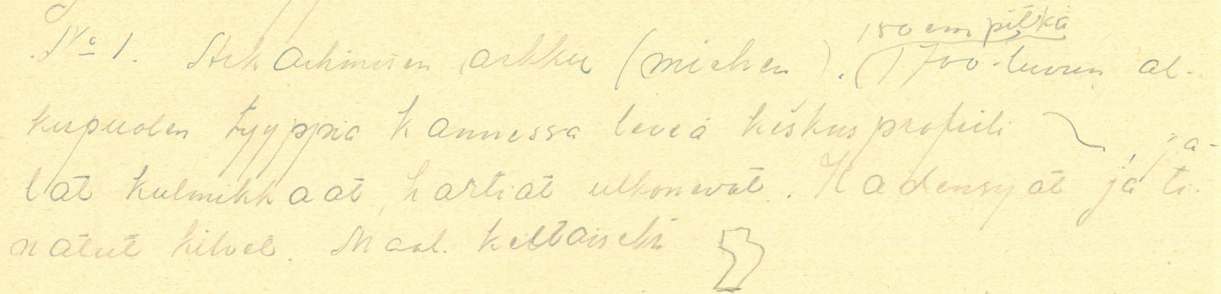 150 cm pitkä
No 1. arkku (miehen). (1700-luvun al-
kupuolen tyyppiä kannessa leveä keskusprofiili, ja-
lat kulmikkaat, hartiat ulkonevat. Kädensijat ja ti-
natut kilvet. Maal. keltaiseksi